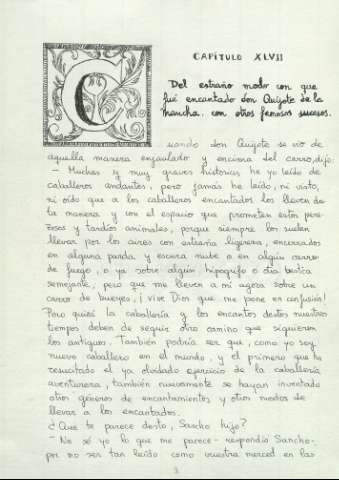 CAPÍTULO XLVII
Del estraño modo con que
fué encantado don Quijote de la
Mancha, con otros famosos sucesos.
C
uando don Quijote se vio de
aquella manera enjaulado y encima del carro, dijo:
- Muchas y muy graves historias he yo leído de
caballeros andantes, pero jamás he leído, ni visto,
ni oído que a los caballeros encantados los lleven de
ta manera y con el espacio que prometen estos pere-
zosos y tardíos animales, porque siempre los suelen
llevar por los aires con estraña ligereza, encerrados
en alguna parda y escura nube o en algún carro
de fuego, o ya sobre algún hipogrifo o otra bestia
semejante, pero que me lleven a mí agora sobre un
carro de bueyes, ¡vive Dios que me pone en confusión!
Pero quizá la caballería y los encantos destos nuestros
tiempos deben de seguir otro camino que siguieron
los antiguos. También podría ser que, como yo soy
nuevo caballero en el mundo, y el primero que ha
resucitado el ya olvidado ejercicio de la caballería
aventurera, también nuevamente se hayan inventado
otros géneros de encantamientos y otros modos de
llevar a los encantados.
¿Qué te parece desto, Sancho hijo?
- No sé yo lo que me parece - respondió Sancho -
por no ser tan leído como vuestra merced en las